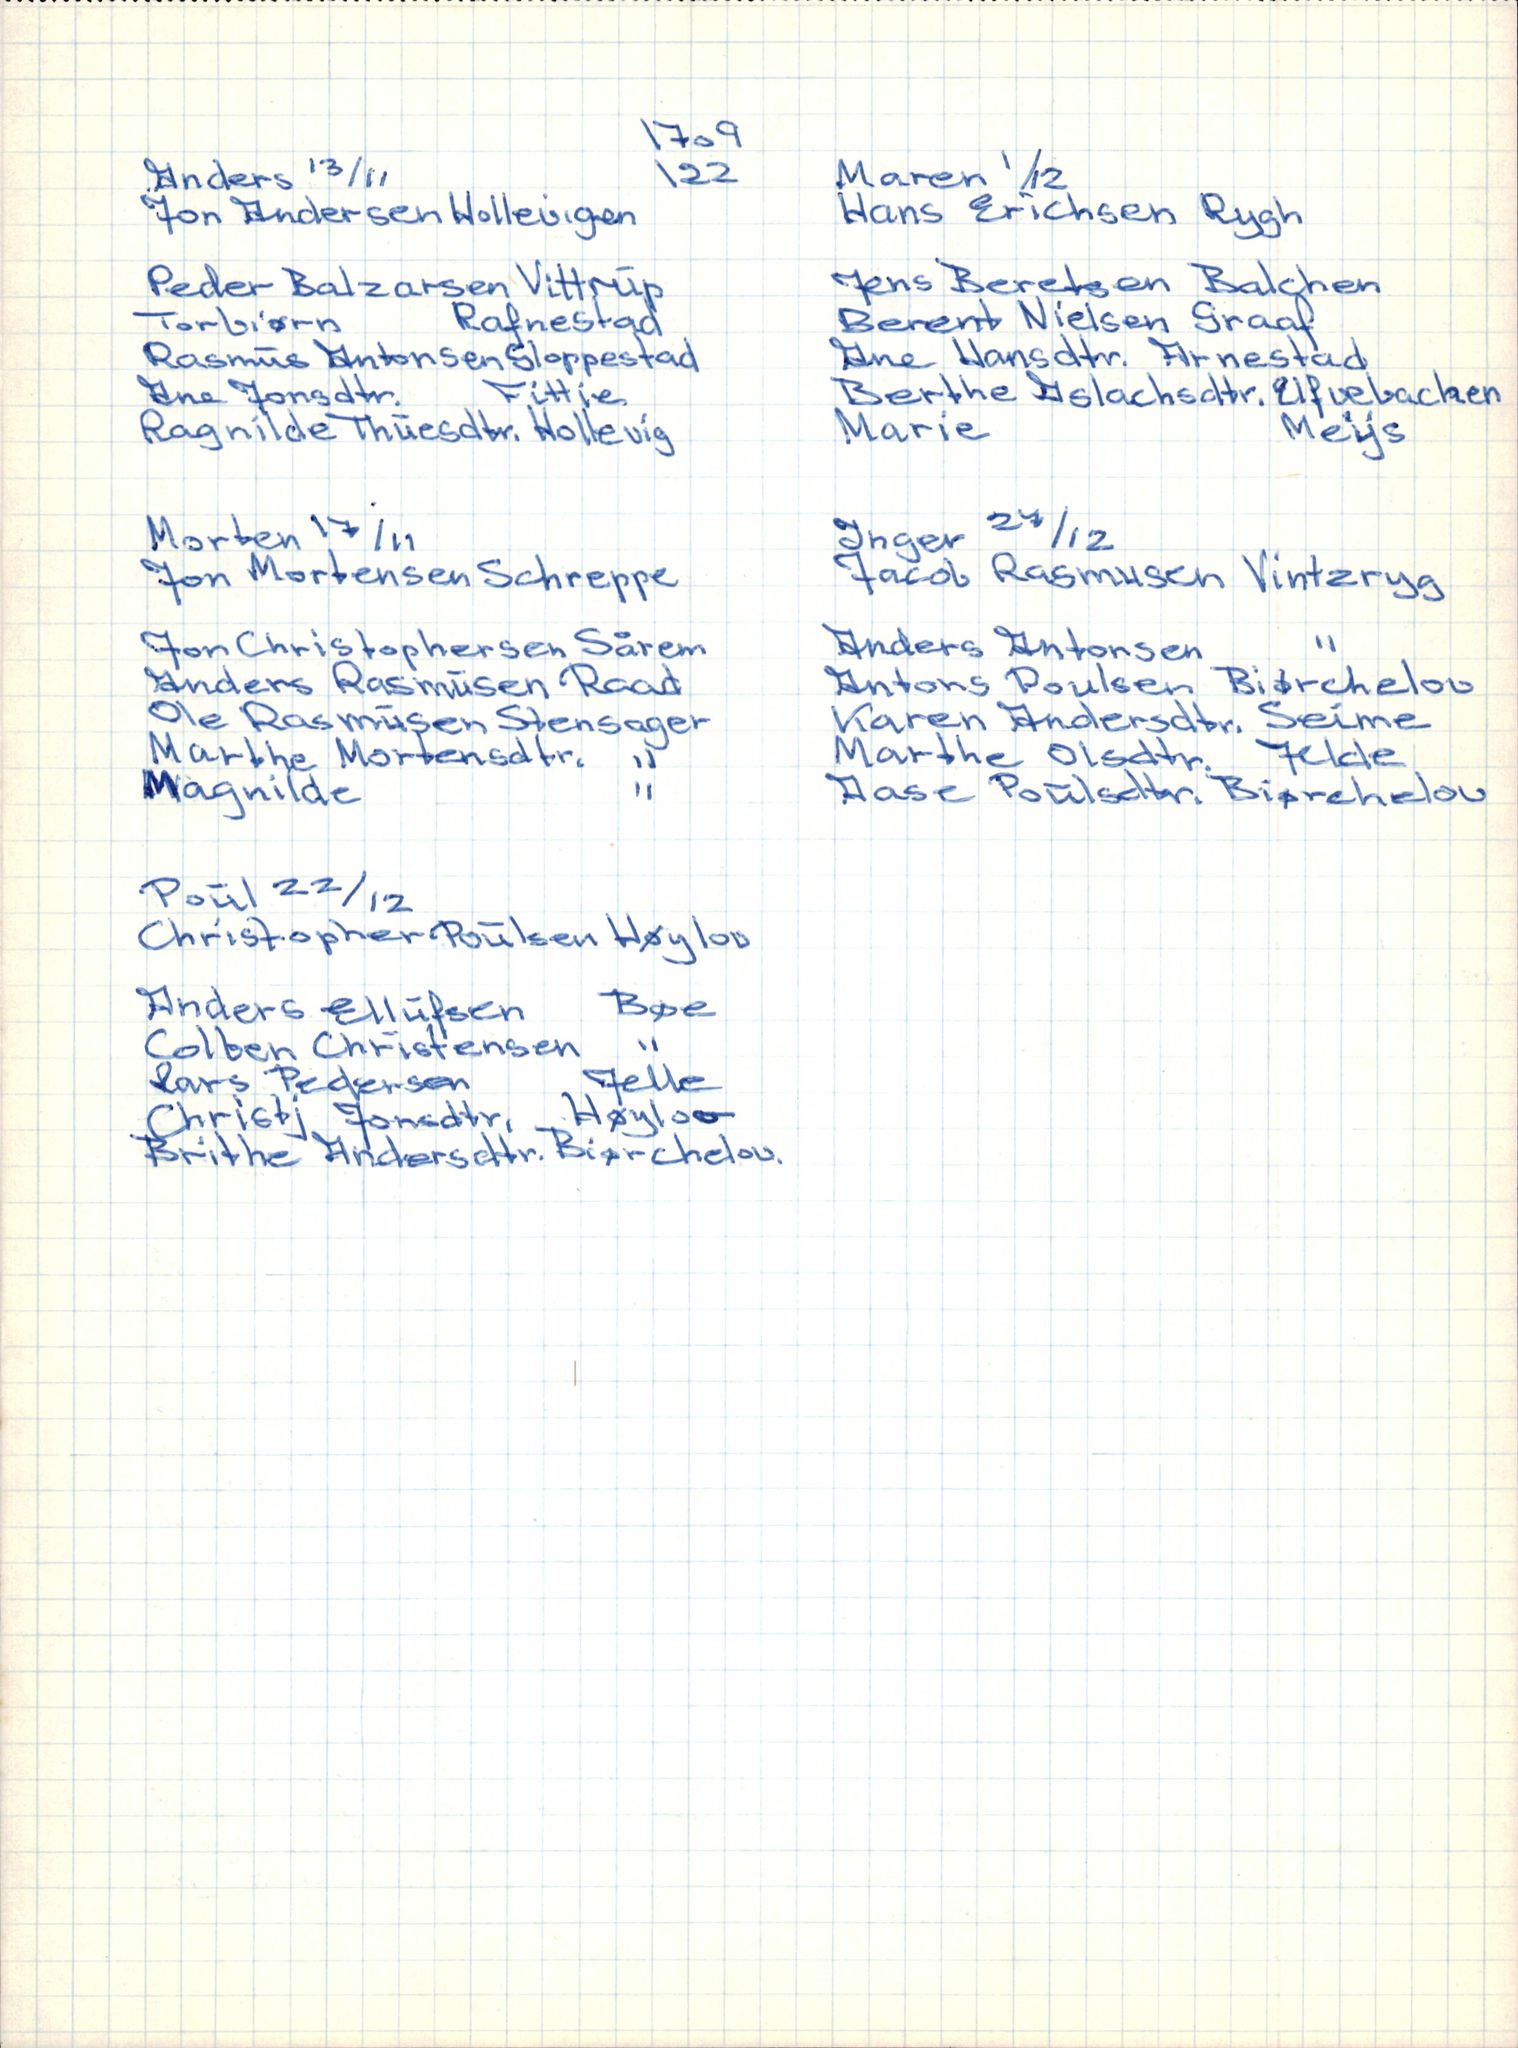 1709
122
Anders 13/11
Jon Andersen Hollevigen
Peder Balzarsen Vittrūp
Torbiørn Rafnestad
Rasmūs Antonsen Gloppestad
Ane Jonsdtr. Fittie
Ragnilde Thūesdtr. Hollevig
Morten 17/11
Jon Mortensen Schreppe
Jon Christophersen Sårem
Anders Rasmūsen Raad
Ole Rasmūsen Stensager
Marthe Mortensdtr. "
Magnilde "
Poūl 22/12
Christopher Poūlsen Høylov
Anders Ellūfsen Bøe
Colben Christensen "
Lars Pedersen Jelle
Christj Jonsdtr. Høylov
Brithe Andersdtr. Biørchelov.
Maren 1/12
Hans Erichsen Rygh
Jens Beretsen Balchen
Berent Nielsen Graaf
Ane Hansdtr. Arnestad
Berthe Aslachsdtr. Elfvebacken
Marie Meijs
Inger 27/12
Jacob Rasmusen Vintzryg
Anders Antonsen "
Antons Poulsen Biørchelov
Karen Andersdtr. Seime
Marthe Olsdtr. Jelde
Aase Poūlsdtr. Biørchelov